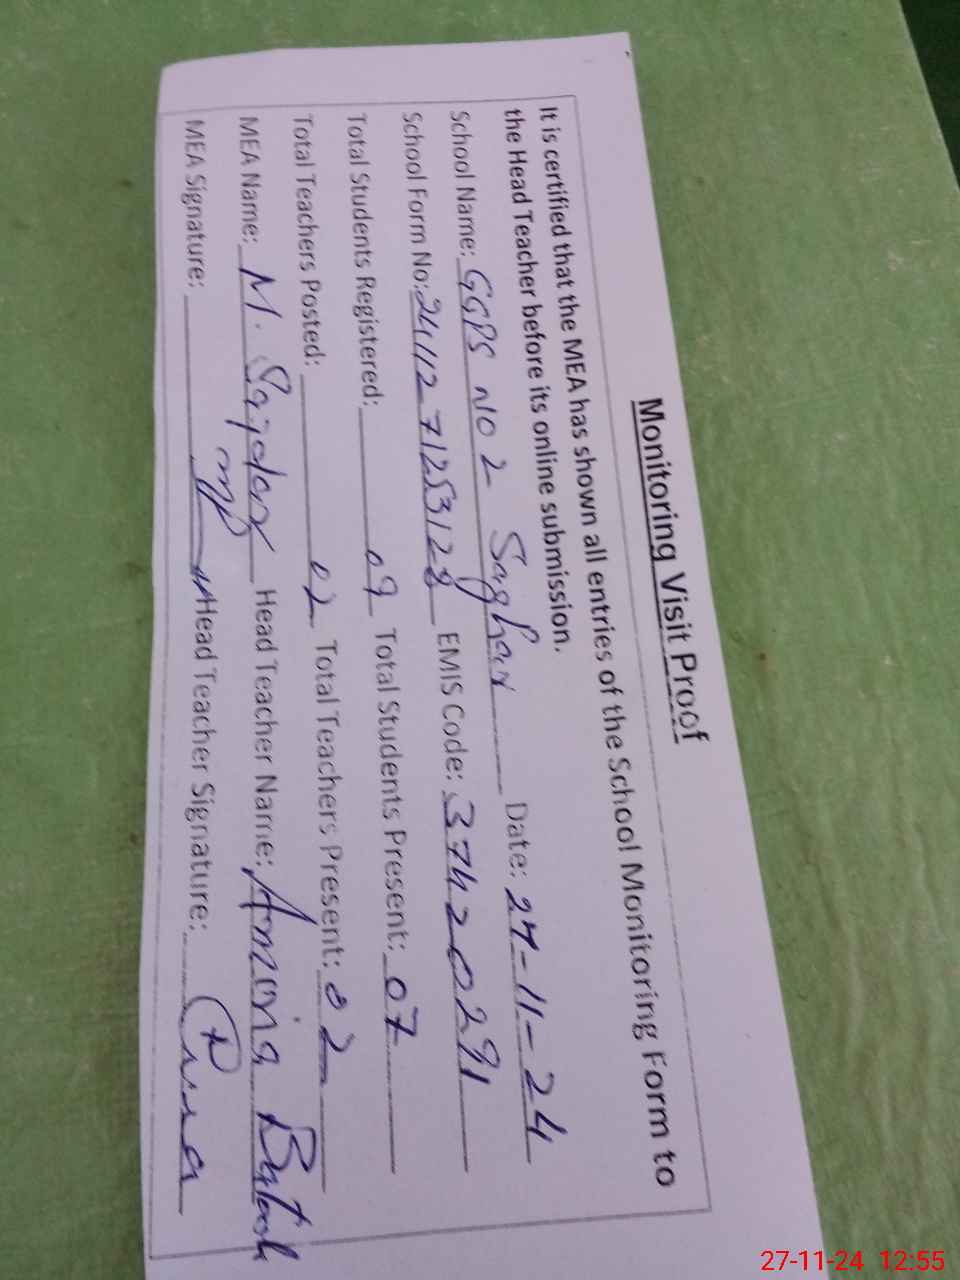 Monitoring Visit Proof
It is certified that the MEA has shown all entries of the School Monitoring Form to
the Head Teacher before its online submission.
School Name: GGPS NO 2 Saghar Date: 27-11-24
School Form No: 2411271253128 EMIS Code: 37420291
Total Students Registered: 09 Total Students Present: 07
Total Teachers Posted: 02 Total Teachers Present: 02
MEA Name: M. Head Teacher Name: Amina
MEA Signature: Head Teacher Signature:
27-11-24 12:55